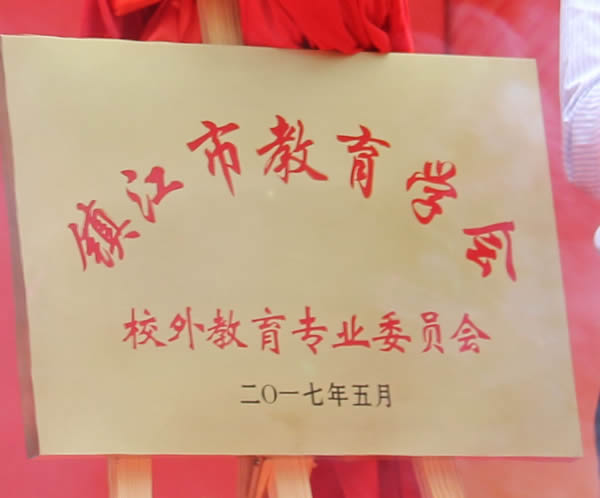 镇江市教育学会
校外教育专业委员会
二〇一七年五月